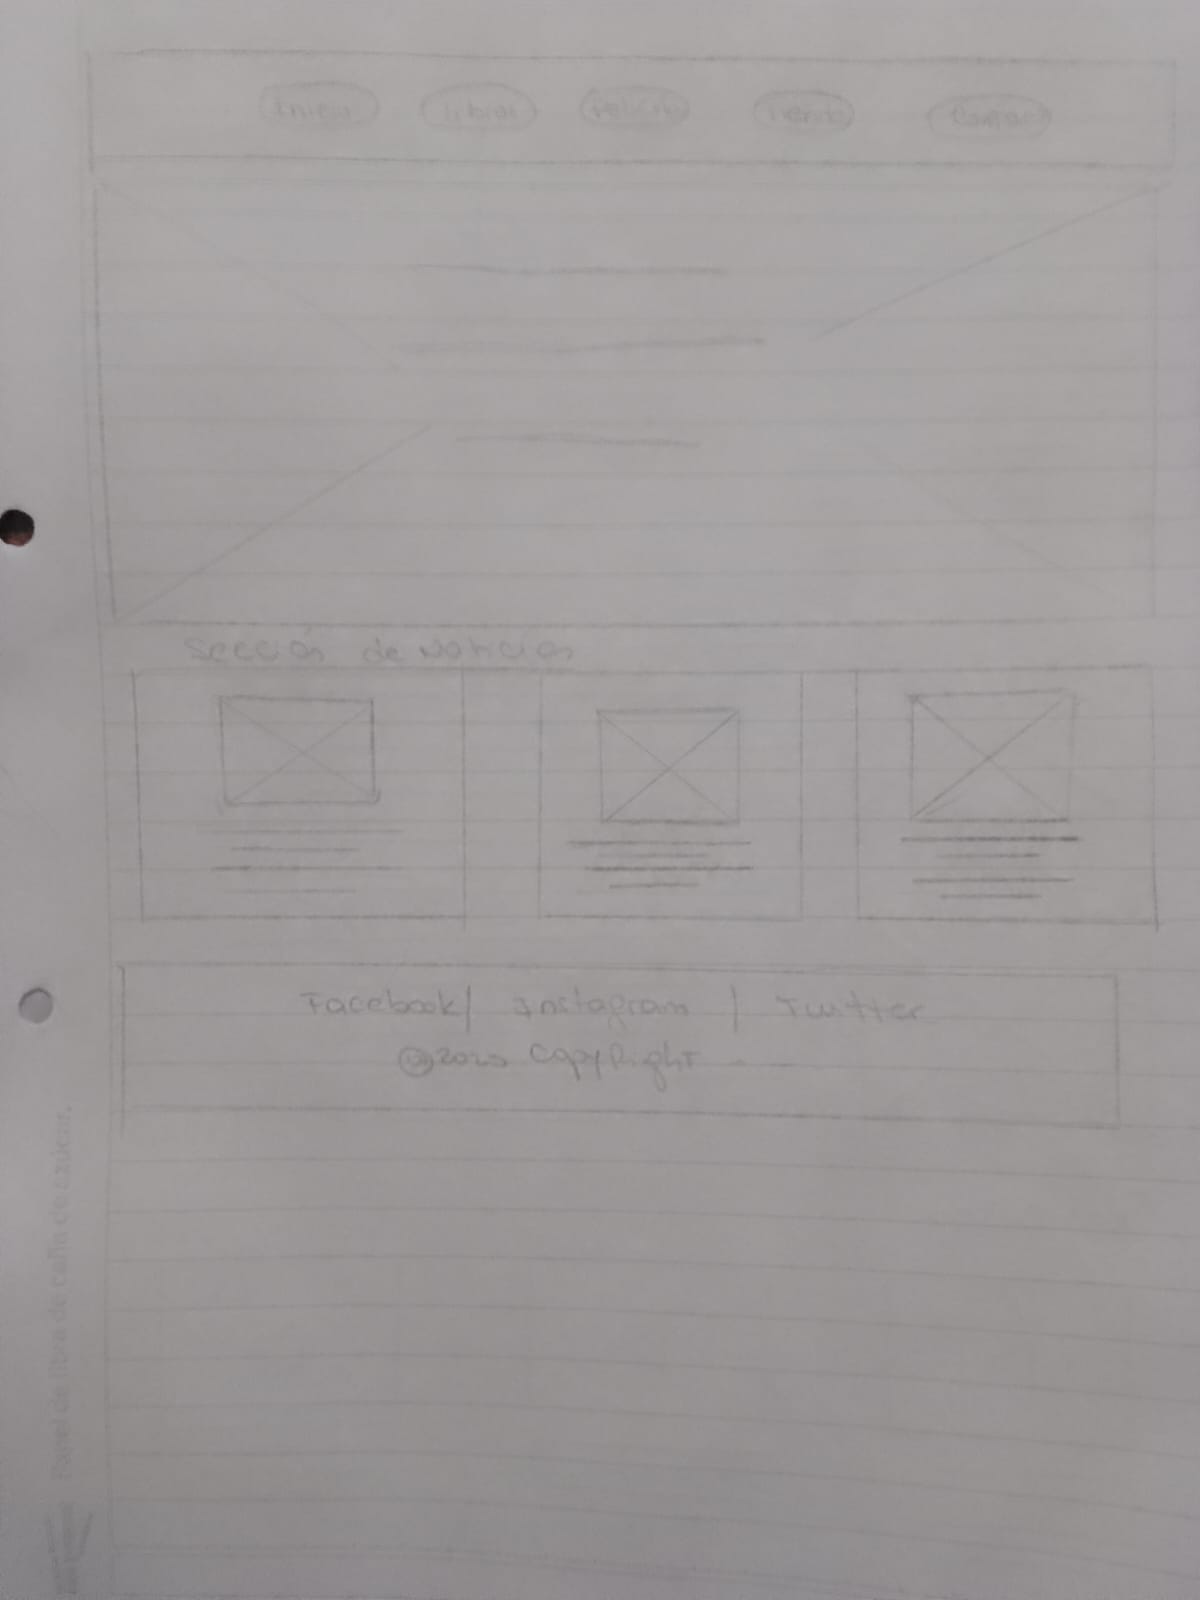 Inicio Libros Películas Tienda Contacto
Sección de Noticias
Facebook/ Instagram | Twitter
©2023 CopyRight
Papel de fibra de caña de azúcar.